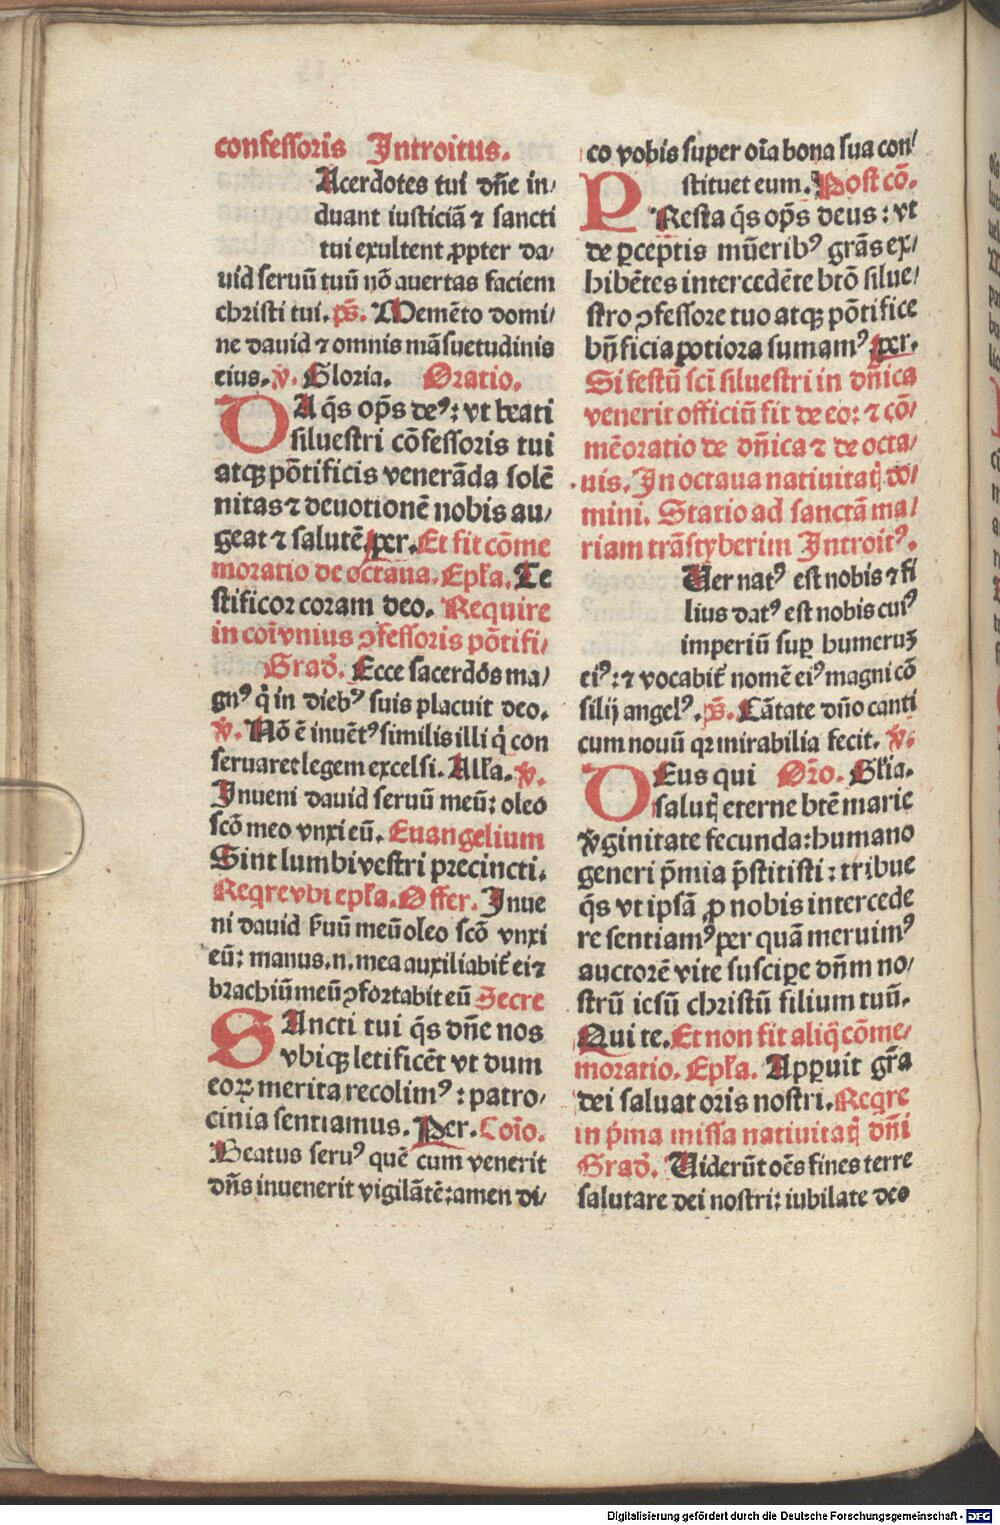 confessoris Introitus.
Acerdotes tui dñe in/
duant iusticiã ⁊ sancti
tui exultent ꝓpter da/
uid seruũ tuũ nõ auertas faciem
christi tui. ps̃. Memẽto domi/
ne dauid ⁊ omnis mãsuetudinis
eius. ℣. Gloria. Oratio.
DA q̃s op̃s deꝰ: vt beati
siluestri cõfessoris tui
atqꝫ põtificis venerãda solẽ
nitas ⁊ deuotionẽ nobis au/
geat ⁊ salutẽ. per. Et fit cõme
moratio de octaua. Ep̃la. Te
stificor coram deo. Require
in coĩvnius ꝯfessoris põtifi/
Grad̃. Ecce sacerdos ma/
gnꝰ q̃ in diebꝰ suis placuit deo.
℣. Nõ ẽ inuẽtꝰ similis illi q̃ con
seruaret legem excelsi. Alła. ℣.
Inueni dauid seruũ meũ: oleo
scõ meo vnxi eũ. Euangelium
Sint lumbi vestri precincti.
Reqre vbi epła. Offer. Inue
ni dauid ẜuũ meũ oleo scõ vnxi
eũ: manus.n.mea auxiliabit̃ ei ⁊
brachiũ meũ ꝯfortabit eũ Secre
SAncti tui q̃s dñe nos
vbiqꝫ letificẽt vt dum
eoꝝ merita recolimꝰ: patro/
cinia sentiamus. Per. Coĩo.
Beatus seruꝰ quẽ cum venerit
dñs inuenerit vigilãtẽ: amen di/
co vobis super oĩa bona sua con/
stituet eum. Post cõ.
PResta q̃s op̃s deus: vt
de ꝑceptis mũeribꝰ grãs ex/
hibẽtes intercedẽte btõ silue/
stro ꝯfessore tuo atqꝫ põtifice
bñficia potiora sumamꝰ. per.
Si festũ sci siluestri in dñica
venerit officiũ fit de eo: ⁊ cõ/
mẽoratio de dñica ⁊ de octa/
uis. In octaua natiuitatꝭ do/
mini. Statio ad sanctã ma/
riam trãstyberim Introitꝰ.
Uer natꝰ est nobis ⁊ fi
lius datꝰ est nobis cuiꝰ
imperiũ suꝑ humeruꝫ
eiꝰ: ⁊ vocabit̃ nomẽ eiꝰ magni cõ
silij angelꝰ. ps̃. Cãtate dño canti
cum nouũ qꝛ mirabilia fecit. ℣.
DEus qui Orõ. Głia.
salutꝭ eterne btẽ marie
v̾ginitate fecunda: humano
generi p̃mia p̃stitisti: tribue
q̃s vt ipsã ꝓ nobis intercede
re sentiamꝰ per quã meruimꝰ
auctorẽ vite suscipe dñm no/
strũ iesũ christũ filium tuũ.
Qui te. Et non fit aliq̃ cõme/
moratio. Epła. Apparuit gr̃a
dei saluatoris nostri. Reqre
in p̃ma missa natiuitatꝭ dñi
Grad̃. Uiderũt oẽs fines terre
salutare dei nostri: iubilate deo
Digitalisierung gefördert durch die Deutsche Forschungsgemeinschaft - DFG